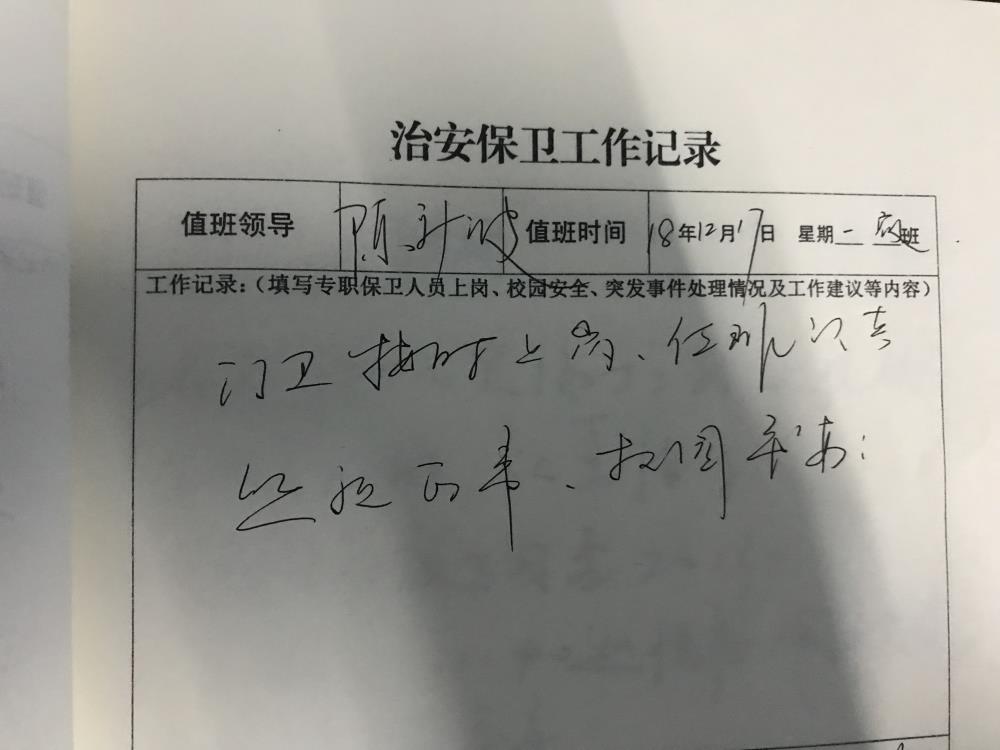 治安保卫工作记录
值班领导 陈 值班时间 18年12月17日 星期一 班
工作记录:(填写专职保卫人员上岗、校园安全、突发事件处理情况及工作建议等内容)
门卫按时上岗、值班认真
正常、校园平安;